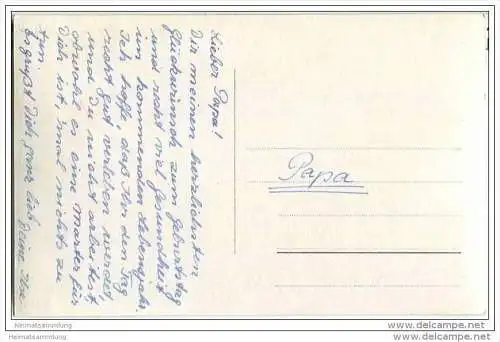 Lieber Papa!
Dir meinen herzlichsten
Glückwunsch zum Geburtstag
und recht viel Gesundheit
im kommenden Lebensjahr.
Ich hoffe, daß Ihr den Tag
recht gut verleben werdet
und Du nicht arbeitest
obwohl es eine Marter für
Dich ist, mal nichts zu
tun.
Es grüßt Dich ganz lieb Deine
Papa
Heimatsammlung
Heimatsammlung
www.heimatsammlung.de